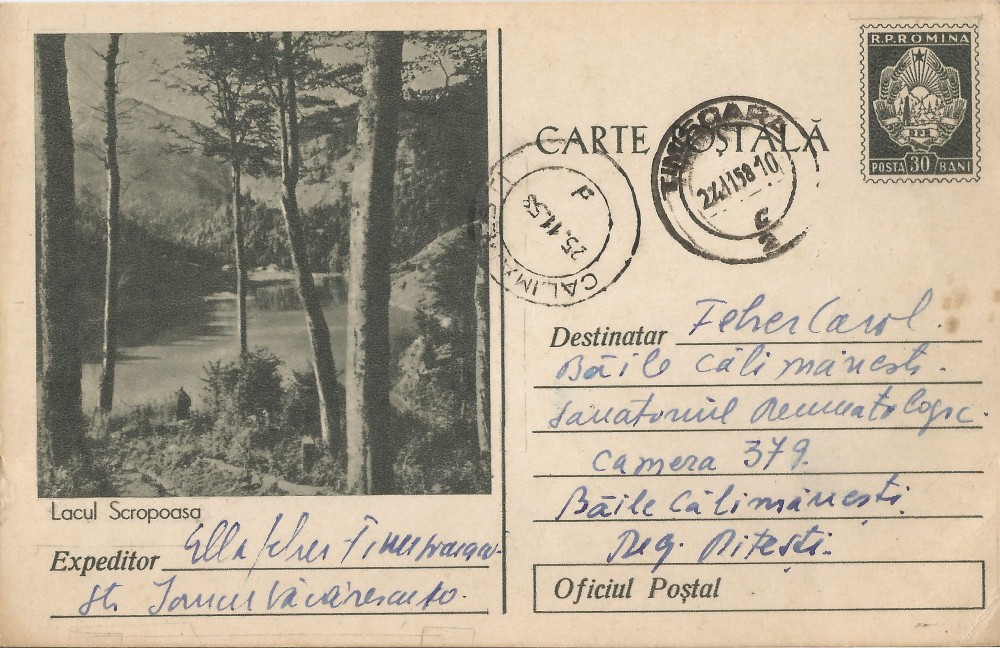 R.P.ROMINA
POSTA 30 BANI
CARTE POȘTALĂ
TIMIȘOARA
22.11.58-10
25.11.58
CĂLIMĂ
Lacul Scropoasa
Expeditor Ella Feher Timișoara
Str Iancu Văcărescu
Destinatar Feher Carol.
Băile Călimănești.
Sanatoriul Reumatologic.
Camera 379.
Băile Călimănești.
Reg. Pitești.
Oficiul Poștal